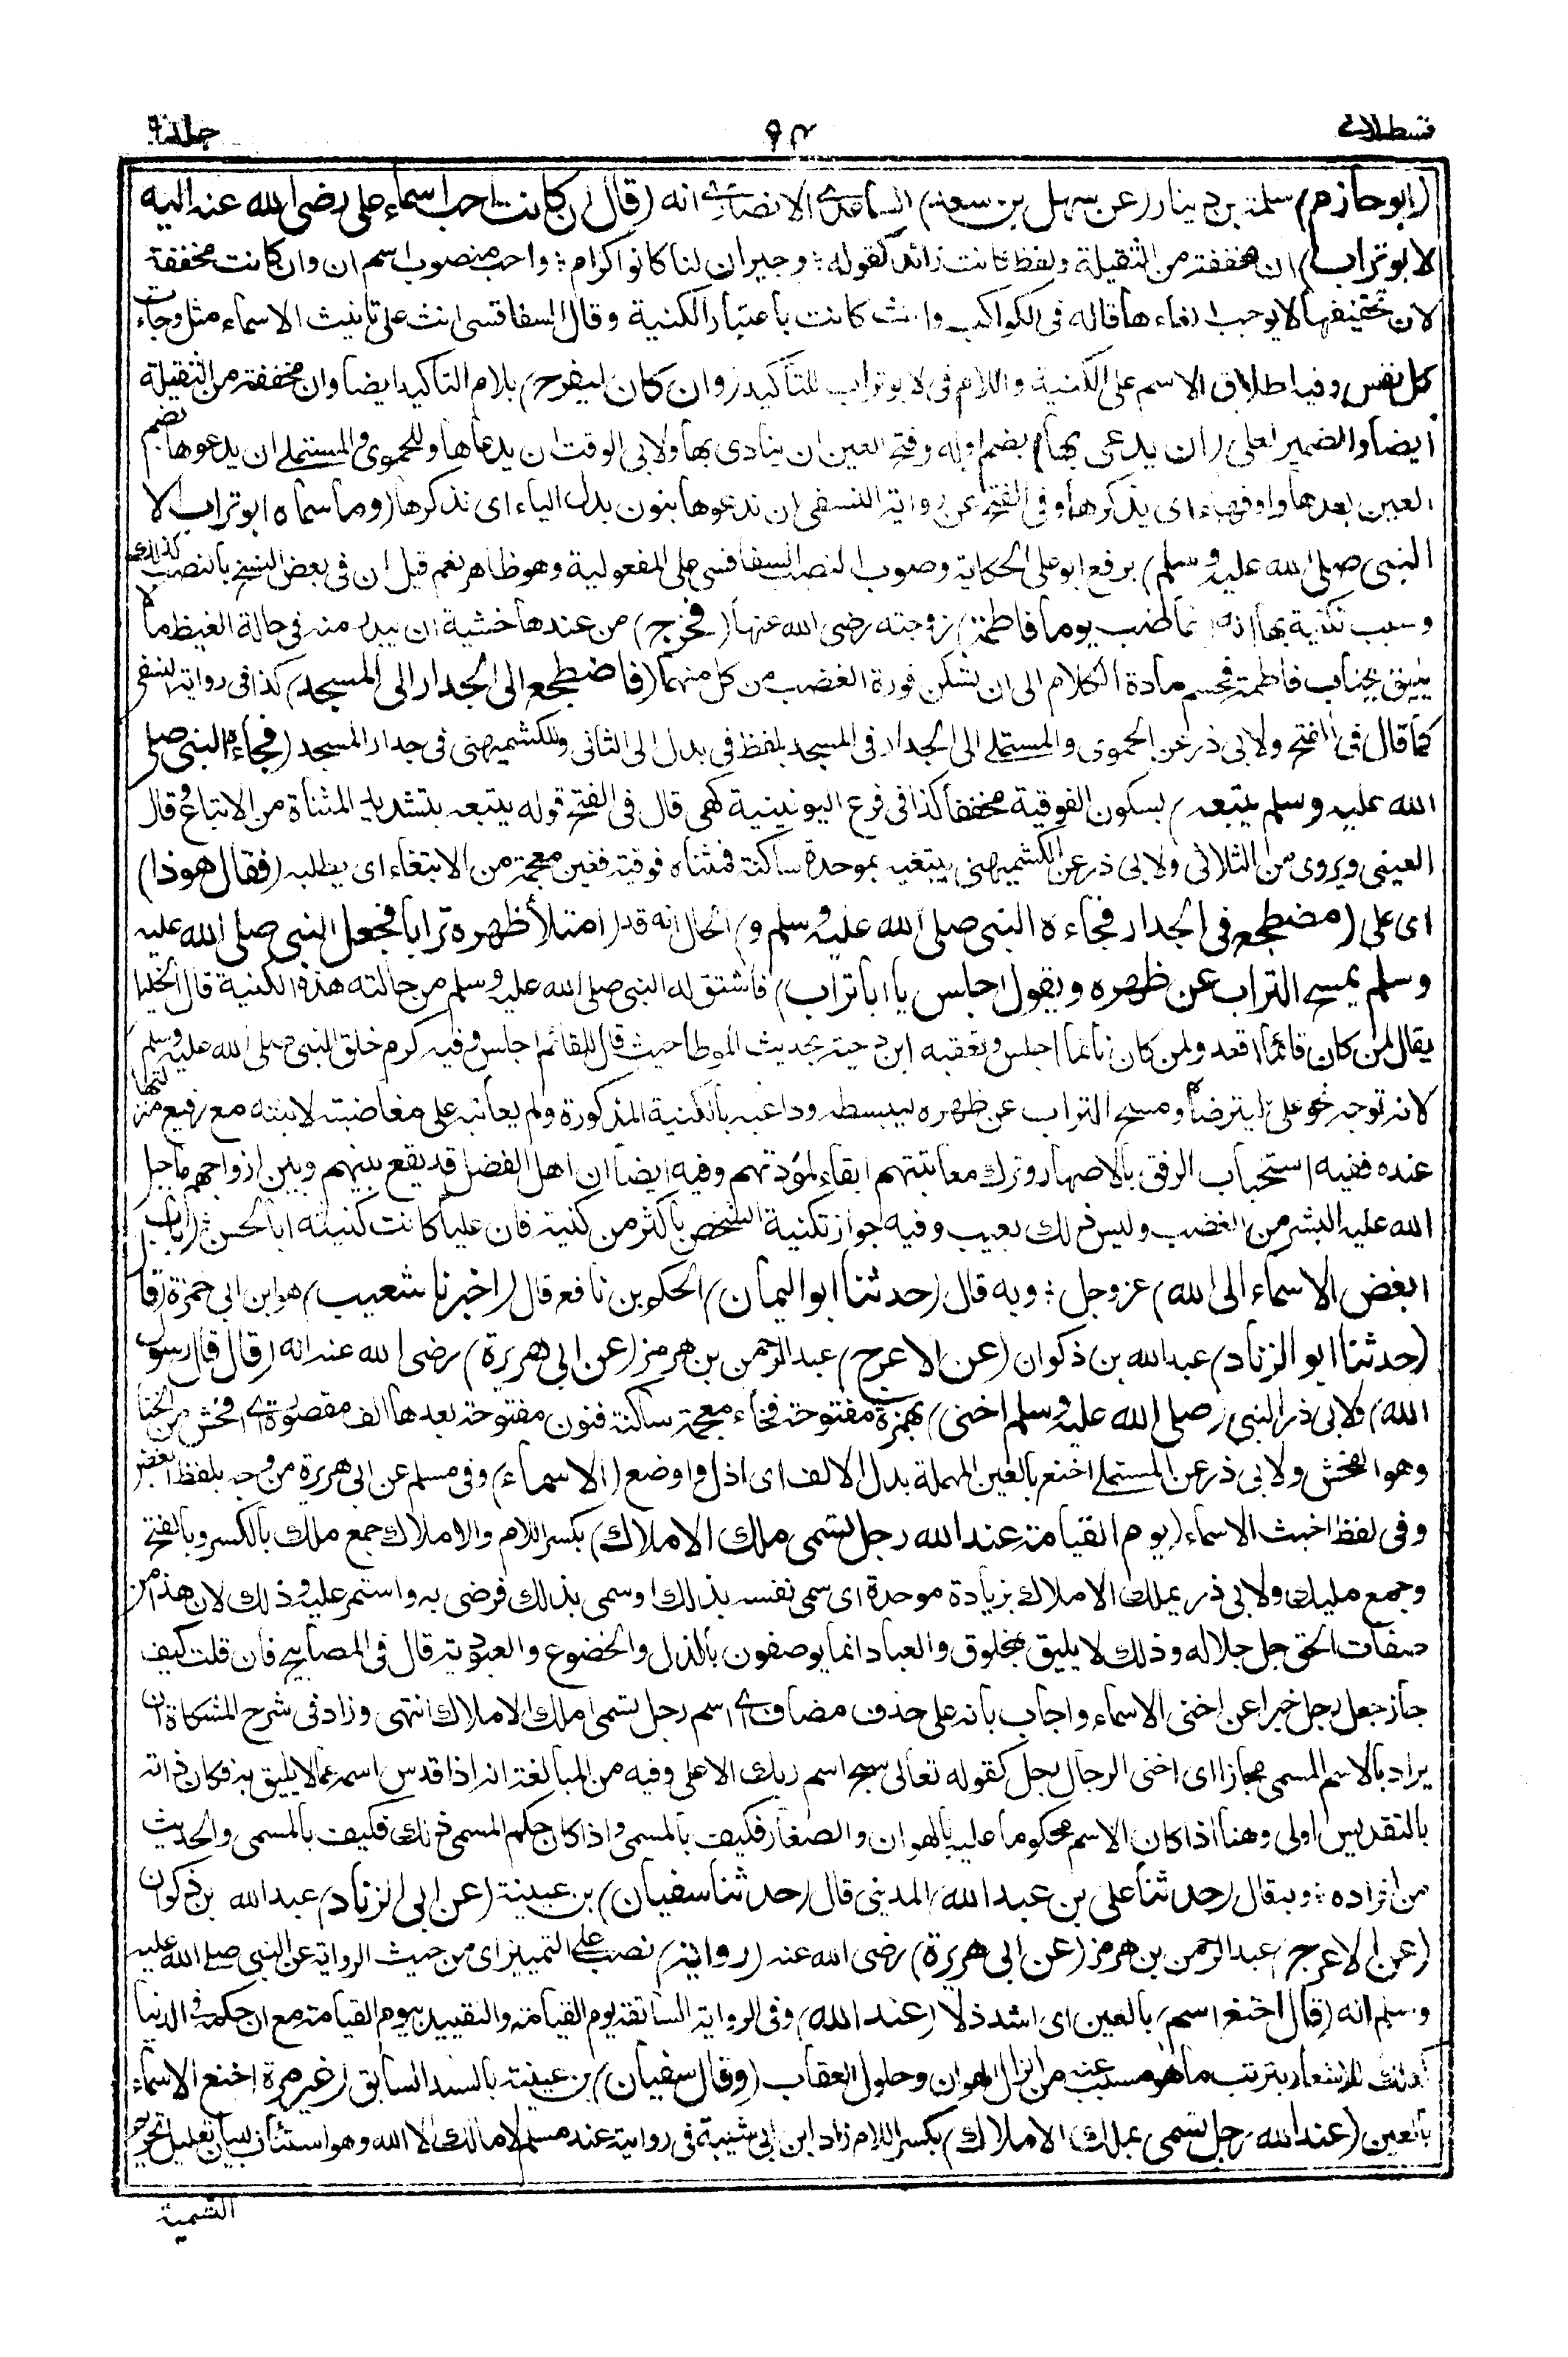 قسطلانی ٩٣ جلد٩
(ابو حازم) سلمة بن دينار (عن سهل بن سعد) الساعدی الانصاری انه (قال ان كانت احب اسماء علی رضی الله عنه اليه
لابو تراب) ان مخففة من الثقيلة ولفظ كانت زائد كقوله ؛ وجيران لنا كانوا كرام ؛ واحب منصوب اسم ان وان كانت مخففة
لان تخفيفها لا يوجب الغاءها قاله فی الكواكب وانث كانت باعتبار الكنية وقال السفاقسی انث علی تانيث الاسماء مثل وجاءت
كل نفس وفيه اطلاق الاسم علی الكنية واللام فی لابو تراب للتأكيد (وان كان ليفرح) بلام التاكيد ايضا وان مخففة من الثقيلة
ايضا والضمير لعلی (ان يدعی بها) بضم اوله وفتح العين ان ينادی بها ولابی الوقت ان يدعاها وللحموی والمستملی ان يدعوها بضم
العين بعدها واو فهاء ای يذكرها وفی الفتح عن رواية النسفی ان ندعوها بنون بدل الياء ای نذكرها (وما سماه ابو تراب الا
النبی صلی الله عليه وسلم) برفع ابو علی الحكاية وصوب النصب السفاقسی علی المفعولية وهو ظاهر نعم قيل ان فی بعض النسخ بالنصب كذلك
وسبب تكنيته بها انه (غاضب يوما فاطمة) زوجته رضی الله عنها (فخرج) من عندها خشية ان يبدر منه فی حالة الغيظ ما لا
يليق بجناب فاطمة فحسم مادة الكلام الی ان تسكن فورة الغضب من كل منهما (فاضطجع الی الجدار الی المسجد) كذا فی رواية النسفی
كما قال فی الفتح ولابی ذر عن الحموی والمستملی الی الجدار فی المسجد بلفظ فی بدل الی الثانی وللكشميهنی فی جدار المسجد (فجاءه النبی صلی
الله عليه وسلم يتبعه) بسكون الفوقية مخففا كذا فی فرع اليونينية كهی قال فی الفتح قوله يتبعه بتشديد المثناة من الاتباع وقال
العينی ويروی من الثلاثی ولابی ذر عن الكشميهنی يبتغيه بموحدة ساكنة فمثناه فوقية فغين معجمة من الابتغاء ای يطلبه (فقال هوذا)
ای علی (مضطجع فی الجدار فجاءه النبی صلی الله عليه وسلم و) الحال انه قد (امتلأ ظهره ترابا فجعل النبی صلی الله عليه
وسلم يمسح التراب عن ظهره ويقول اجلس يا ابا تراب) فاشتق له النبی صلی الله عليه وسلم من حالته هذه الكنية قال الخليل
يقال لمن كان قائما اقعد ولمن كان نائما اجلس وتعقبه ابن دحية بحديث الموطا حيث قال للقائم اجلس وفيه كرم خلق النبی صلی الله عليه وسلم
لانه توجه نحو علی ليترضاه ومسح التراب عن ظهره ليبسطه وداعبه بالكنية المذكورة ولم يعاتبه علی مغاضبته لابنته مع رفيع منزلتها
عنده ففيه استحباب الرفق بالاصهار وترك معاتبتهم ابقاء لمودتهم وفيه ايضا ان اهل الفضل قد يقع بينهم وبين ازواجهم ما جبل
الله عليه البشر من الغضب وليس ذلك بعيب وفيه جواز تكنية الشخص باكثر من كنية فان عليا كانت كنيته ابا الحسن ؛ (باب
ابغض الاسماء الی الله) عز وجل ؛ وبه قال (حدثنا ابو اليمان) الحكم بن نافع قال (اخبرنا شعيب) هو ابن ابی حمزة (قال
(حدثنا ابو الزناد) عبد الله بن ذكوان (عن الاعرج) عبد الرحمن بن هرمز (عن ابی هريرة) رضی الله عنه انه (قال قال رسول
الله) ولابی ذر النبی (صلی الله عليه وسلم اخنی) بهمزة مفتوحة فخاء معجمة ساكنة فنون مفتوحة بعدها الف مقصورة ای افحش من الخنا
وهو الفحش ولابی ذر عن المستملی اخنع بالعين المهملة بدل الالف ای اذل واوضع (الاسماء) وفی مسلم عن ابی هريرة من وجه بلفظ ابغض
وفی لفظ اخبث الاسماء (يوم القيامة عند الله رجل تسمی ملك الاملاك) بكسر اللام والاملاك جمع ملك بالكسر وبالفتح
وجمع مليك ولابی ذر بملك الاملاك بزيادة موحدة ای سمی نفسه بذلك او سمی بذلك فرضی به واستمر عليه وذلك لان هذا من
صفات الحق جل جلاله وذلك لا يليق بمخلوق والعباد انما يوصفون بالذل والخضوع والعبودية قال فی المصابيح فان قلت كيف
جاز جعل رجل خبرا عن اخنی الاسماء واجاب بانه علی حذف مضاف ای اسم رجل تسمی ملك الاملاك انتهی وزاد فی شرح المشكاة ان
يراد بالاسم المسمی مجازا ای اخنی الرجال رجل كقوله تعالی سبح اسم ربك الاعلی وفيه من المبالغة انه اذا قدس اسمه عما لا يليق به فكان ذاته
بالتقديس اولی وهنا اذا كان الاسم محكوما عليه بالهوان والصغار فكيف بالمسمی واذا كان حكم المسمی ذلك فكيف بالمسمی والحديث
من افراده ؛ وبه قال (حدثنا علی بن عبد الله) المدينی قال (حدثنا سفيان) بن عيينة (عن ابی الزناد) عبد الله بن ذكوان
(عن الاعرج) عبد الرحمن بن هرمز (عن ابی هريرة) رضی الله عنه (رواية) نصب علی التمييز ای من حيث الرواية عن النبی صلی الله عليه
وسلم انه (قال اخنع اسم) بالعين ای اشد ذلا (عند الله) وفی الرواية السابقة يوم القيامة والتقييد بيوم القيامة مع ان حكمه فی الدنيا
كذلك للاشعار بترتب ما هو مسبب عنه من انزال الهوان وحلول العقاب (وقال سفيان) بن عيينة بالسند السابق (غير مرة اخنع الاسماء
بالعين (عند الله رجل تسمی بملك الاملاك) بكسر اللام زاد ابن ابی شيبة فی روايته عند مسلم لا مالك الا الله وهو استئناف لبيان تعليل تحريم
التسمية